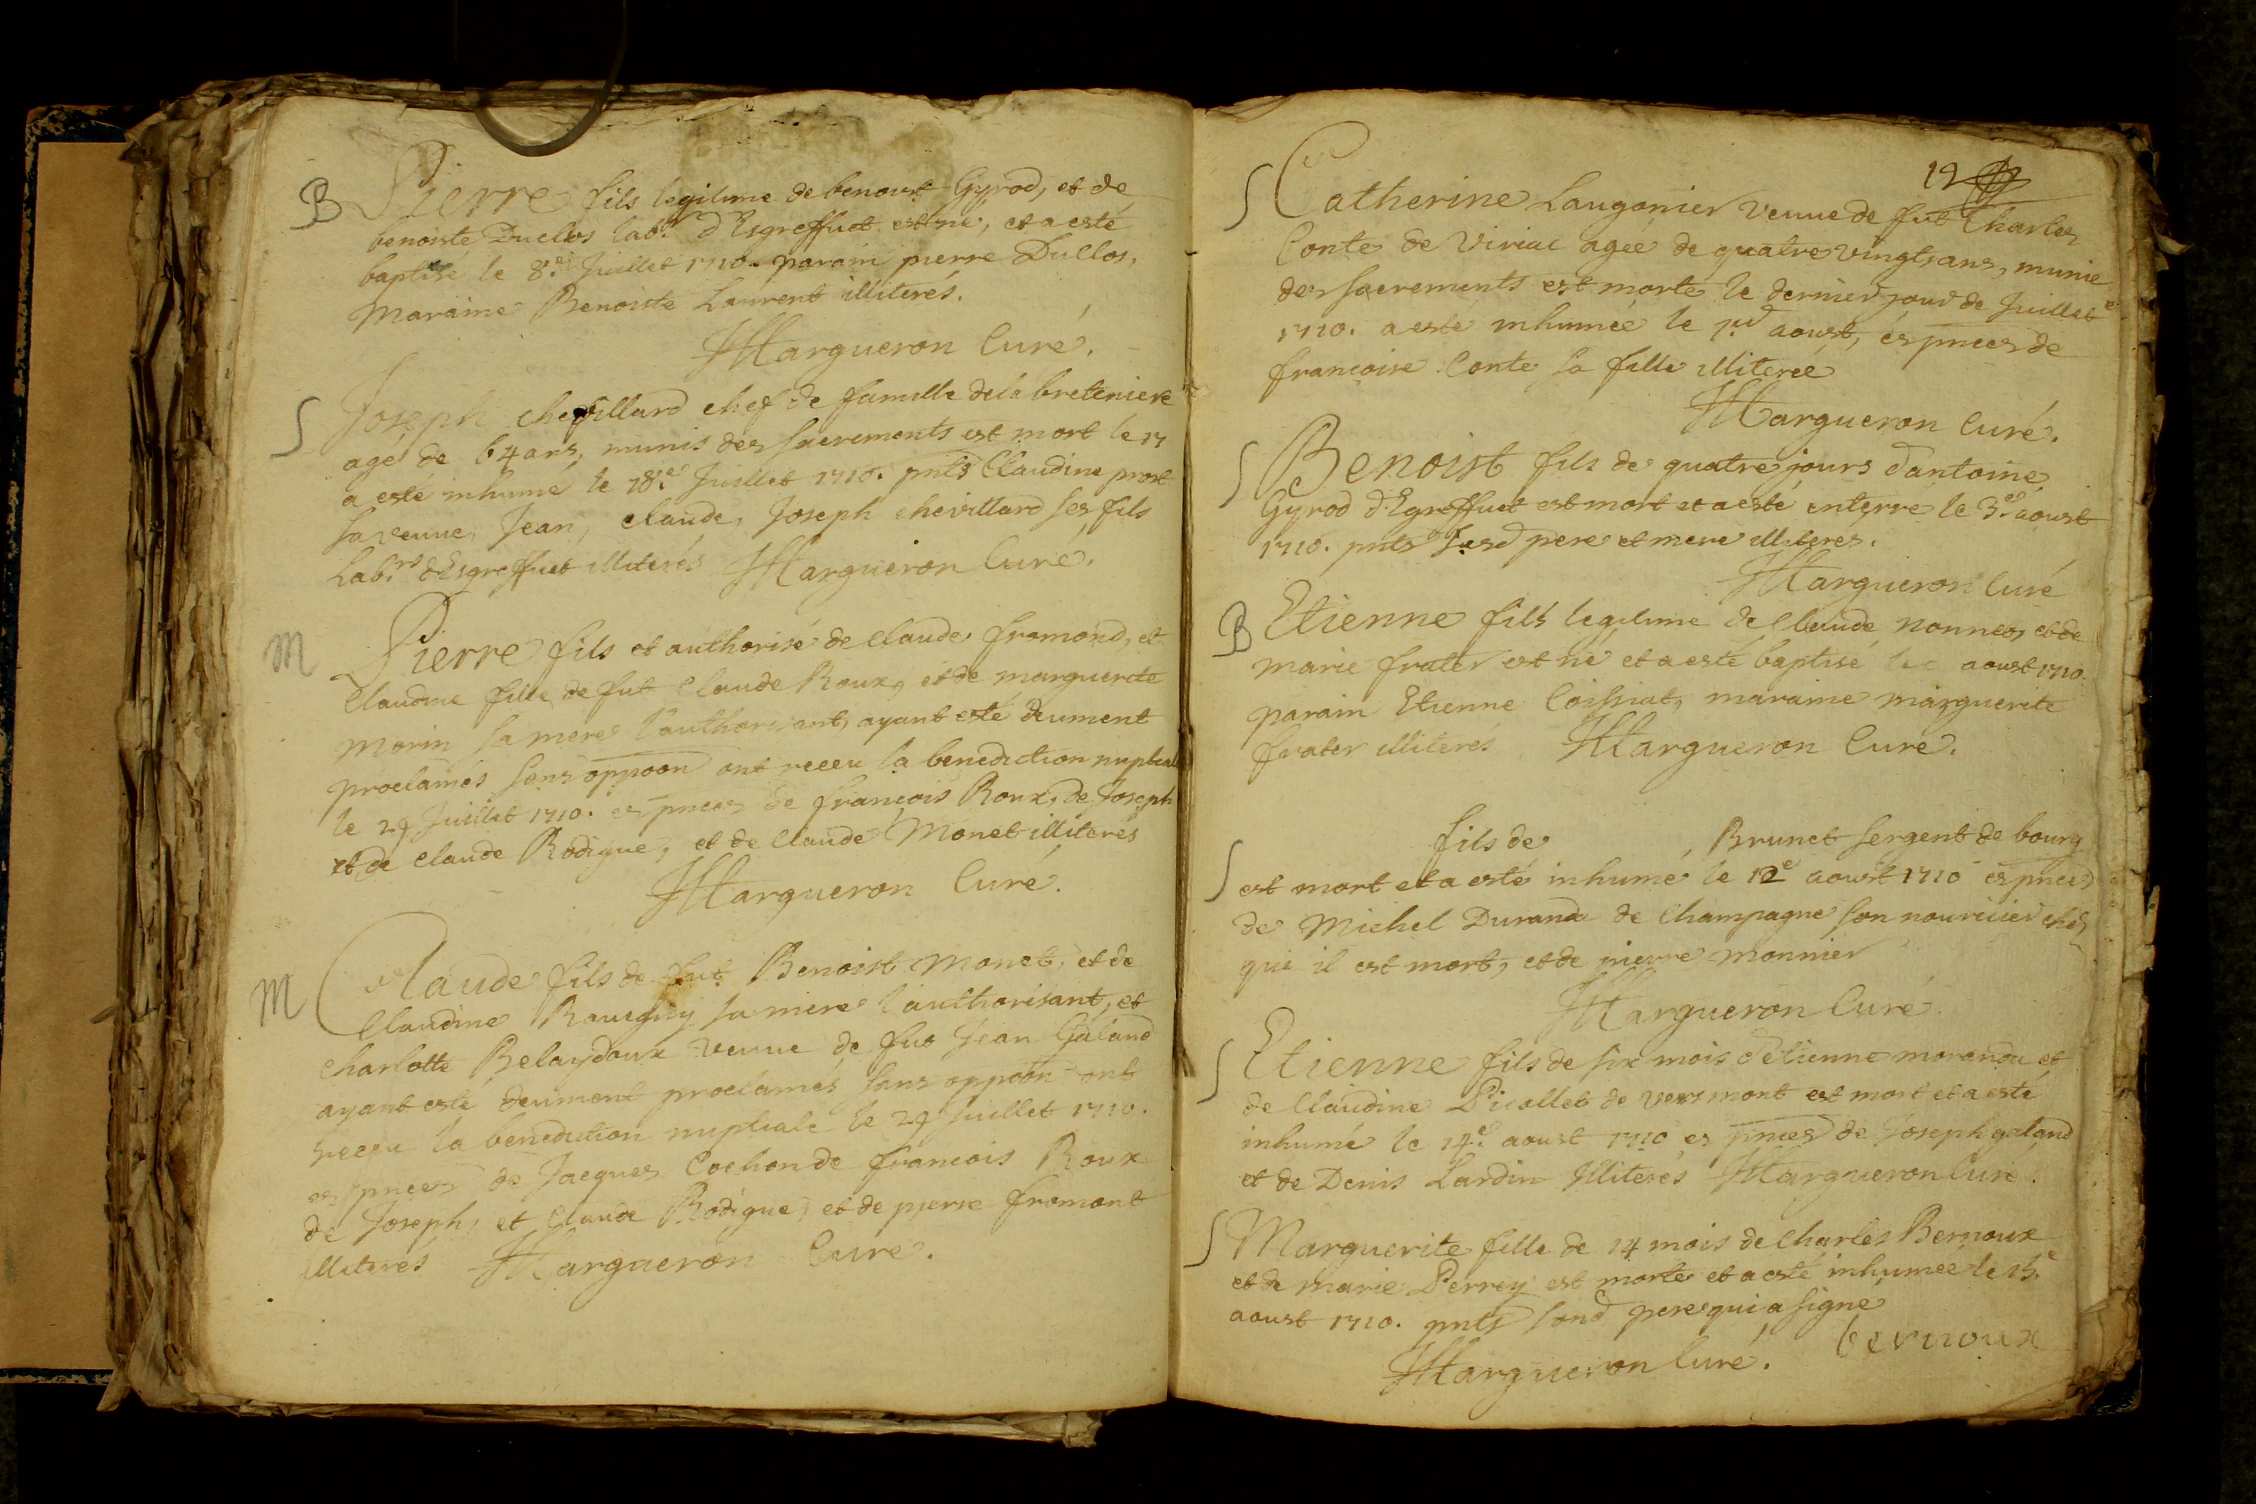 B Pierre fils legitime de benoist Gyrod, et de
benoiste Duclos lab.r d'Esgreffuet est né, et a esté
baptisé le 8.e Juillet 1710. parain pierre Dullos,
Maraine Benoiste Laurent illiterés.
JMargueron Curé.
S Joseph chevillard chef de famille de la breteniere
agé de 64 ans, munis des sacrements est mort le 17
a esté inhumé le 18.e Juillet 1710. pnts Claudine prost
sa veuue, Jean, claude, Joseph chevillard ses fils
Lab.rs d'Esgreffuet illiterés JMargueron Curé.
M Pierre fils et authorisé de claude fromond, et
Claudine fille de fut Claude Roux, et de marguerite
morin sa mere l'authorisant, ayant esté deument
proclamés sans oppoon ont receu la benediction nuptiale
le 29 Juillet 1710. es pnces de francois Roux, de Joseph
et de claude Rodigue, et de Claude Monet illiteres
JMargueron Curé.
M Claude fils de fut Benoist Monet, et de
Claudine sa mere l'authorisant, et
charlotte Belaydoux veuue de fut Jean Galand
ayant esté deument proclamés sans oppoon ont
receu la benediction nuptiale le 29 Juillet 1710.
es pnces de Jacques Cochon de francois Roux
de Joseph, et Claude Rodigue, et de pierre fromont
illiterés JMargueron Curé.
12
S Catherine Laugonier veuue de fut Charles
Conte de Viriat ageé de quatre vingts ans, munie
des sacrements est morte le dernier jour de Juillet
1710. a esté inhumeé le 1.er aoust, és pnces de
francoise Conte sa fille illitereé
JMargueron Curé.
S Benoist fils de quatre jours d'antoine
Gyrod d'Egreffuet est mort et a esté enterre le 3.e aoust
1710. pnts sesd pere et mere illiteres.
JMargueron Curé
B Etienne fils legitime de Claude nonnes et de
marie frater est né et a esté baptisé le aoust 1710.
parain Etienne Coissiat, maraine marguerite
frater illiterés JMargueron Curé.
fils de Brunet sergent de bourg
S est mort et a esté inhumé le 12e aoust 1710 es pnces
de Michel Durand de Champagne son nouricier chés
qui il est mort, et de pierre monnier
JMargueron Curé
S Etienne fils de six mois d'etienne morandu et
de Claudine Picollet de vermont est mort et a esté
inhumé le 14.e aoust 1710 es pnces de Joseph galand
et de Denis Lardin Illiterés JMargueron Curé.
S Marguerite fille de 14 mois de charles Bernoux
et de Marie Perrey est morte et a esté inhumeé le 15.e
aoust 1710. pnts sond pere qui a signe
JMargueron Curé. bernoux